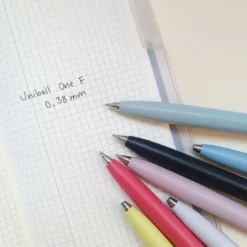 Uniball One F
0,38 mm